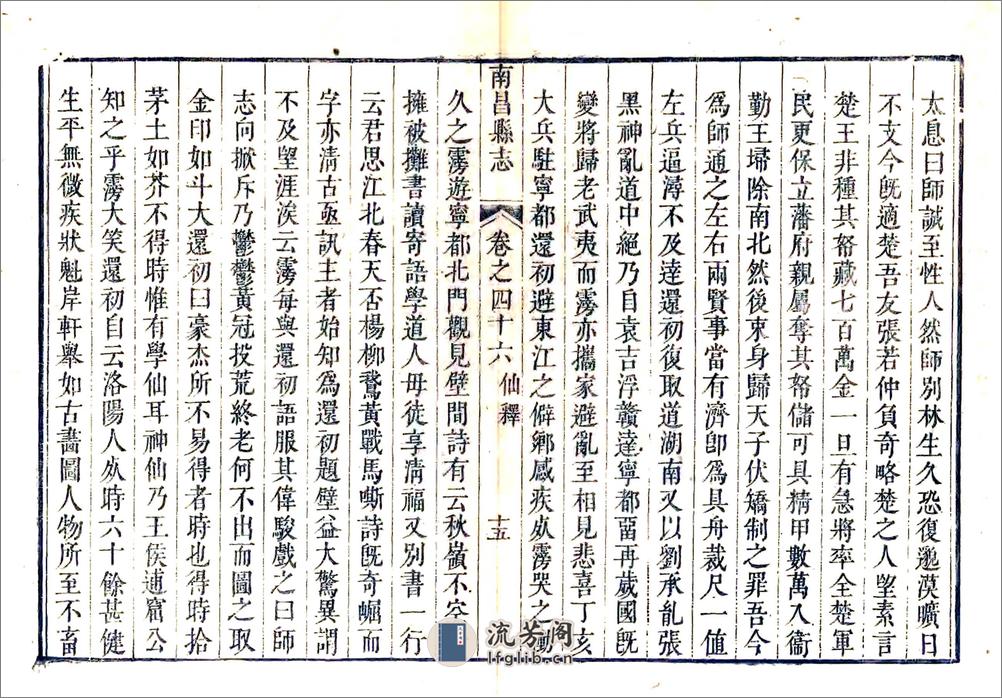 太息曰師誠至性人然師別林生久恐復邈漠曠日
不支今旣適楚吾友張若仲負奇略楚之人望素言
楚王非種其帑藏七百萬金一旦有急將率全楚軍
民更保立藩府親屬奪其帑儲可具精甲數萬入衞
勤王埽除南北然後束身歸天子伏矯制之罪吾今
爲師通之左右兩賢事當有濟卽爲具舟裁尺一値
左兵逼潯不及達還初復取道湖南又以劉承胤張
黑神亂道中絕乃自袁吉浮贛達寧都畱再歲國旣
變將歸老武夷而霶亦攜家避亂至相見悲喜丁亥
大兵駐寧都還初避東江之僻鄕感疾㱔霶哭之慟
南昌縣志
卷之四十六 仙釋 十五
久之霶遊寧都北門觀見壁間詩有云秋嶺不空
擁被攤書讀寄語學道人毋徒享淸福又別書一行
云君思江北春天否楊柳鵞黃戰馬嘶詩旣奇崛而
字亦淸古亟訊主者始知爲還初題壁益大驚異謂
不及望涯涘云霶每與還初語服其偉駿戲之曰師
志向掀斥乃鬱鬱黃冠投荒終老何不出而圖之取
金印如斗大還初曰豪杰所不易得者時也得時拾
茅土如芥不得時惟有學仙耳神仙乃王侯逋窟公
知之乎霶大笑還初自云洛陽人㱔時六十餘甚健
生平無微疾狀魁岸軒舉如古畵圖人物所至不畜
流芳阁
lfglib.cn